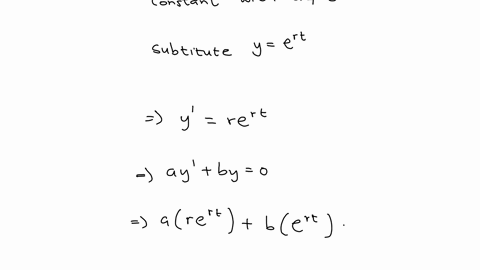 constant
subtitute y = e^{rt}
=) y' = re^{rt}
=) ay' + by = 0
=) a(re^{rt}) + b(e^{rt}) .